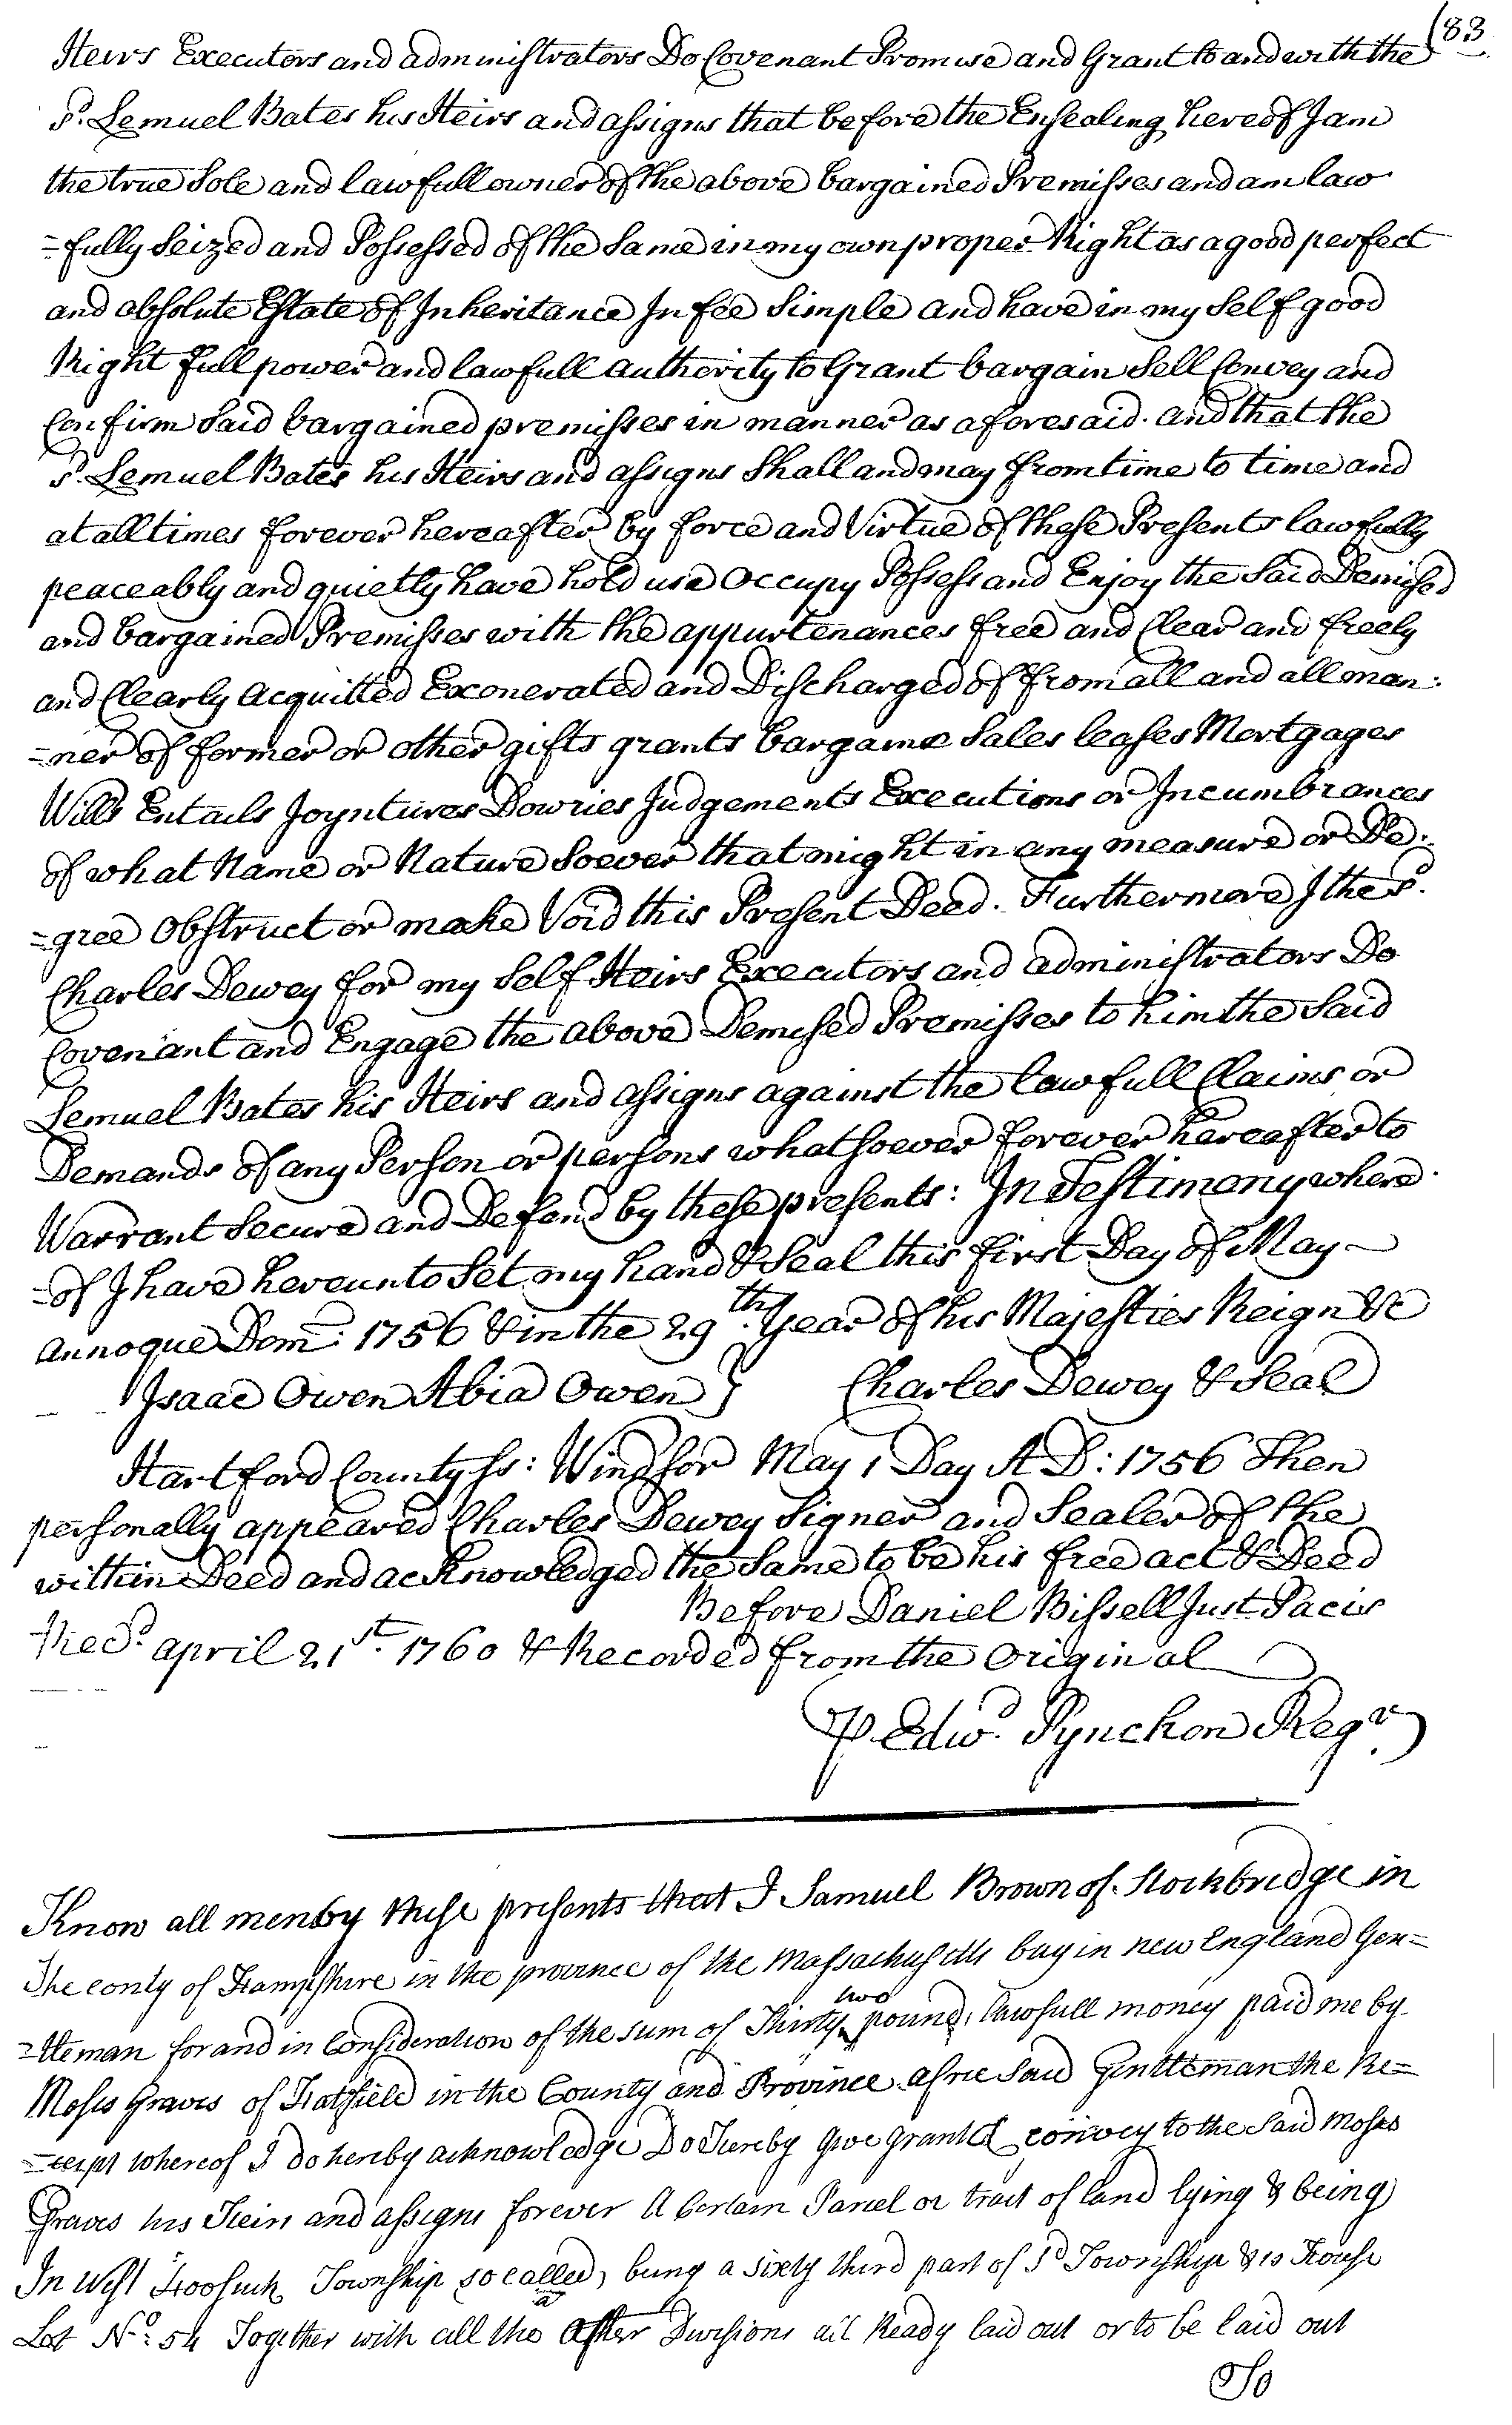 (83
Heirs Executors and administrators Do Covenant Promise and Grant to and with the
sd. Lemuel Bates his Heirs and assigns that before the Ensealing hereof I am
the true Sole and lawfull owner of the above bargained Premisses and am law
=fully Seized and Possessed of the Same in my own proper Right as a good perfect
and absolute Estate of Inheritance In fee Simple and have in my Self good
Right full power and lawfull authority to Grant bargain Sell Convey and
Confirm Said bargained premisses in manner as aforesaid. and that the
sd. Lemuel Bates his Heirs and assigns Shall and may from time to time and
at all times forever hereafter by force and Virtue of these Presents lawfully
peaceably and quietly have hold use Occupy Possess and Enjoy the Said Demised
and bargained Premisses with the appurtenances free and Clear and freely
and Clearly Acquitted Exonerated and Discharged of from all and all man:
=ner of former or other gifts grants bargains Sales leases Mortgages
Wills Entails Joyntures Dowries Judgements Executions or Incumbrances
of what Name or Nature Soever that might in any measure or De:
=gree Obstruct or make Void this Present Deed. Furthermore I the sd.
Charles Dewey for my Self Heirs Executors and administrators Do
Covenant and Engage the above Demised Premisses to him the Said
Lemuel Bates his Heirs and assigns against the lawfull Claims or
Demands of any Person or persons whatsoever forever hereafter to
Warrant Secure and Defend by these presents: In Testimony where
=of I have hereunto Set my hand & Seal this first Day of May
annoque Dom: 1756 & in the 29th. Year of his Majesties Reign &c
Isaac Owen Abia Owen } Charles Dewey & Seal
Hartford County ss: Windsor May 1 Day A D: 1756 Then
personally appeared Charles Dewey Signer and Sealer of the
within Deed and acknowledged the Same to be his free act & Deed
Before Daniel Bissell Just Pacis
Recd. april 21st. 1760 & Recorded from the Original
⅌ Edwd. Pynchon Regr.
Know all men by these presents that I Samuel Brown of Stockbridge in
The conty of Hampshire in the province of the Massachusetts bay in new England Gen=
=tleman for and in Consideration of the sum of Thirty two pound, lawfull money paid me by
Moses Graves of Hatfield in the County and Province afore Said Gentleman the Re=
=ceipt whereof I do hereby acknowledge Do Hereby Give grant & convey to the Said Moses
Graves his Heirs and assigns forever A Certain Parcel or tract of land lying & being
In West Hoosuck Township so called, being a sixty third part of sd Township & is House
Lot No: 54 Together with all the After Divisions all Ready laid out or to be laid out
So